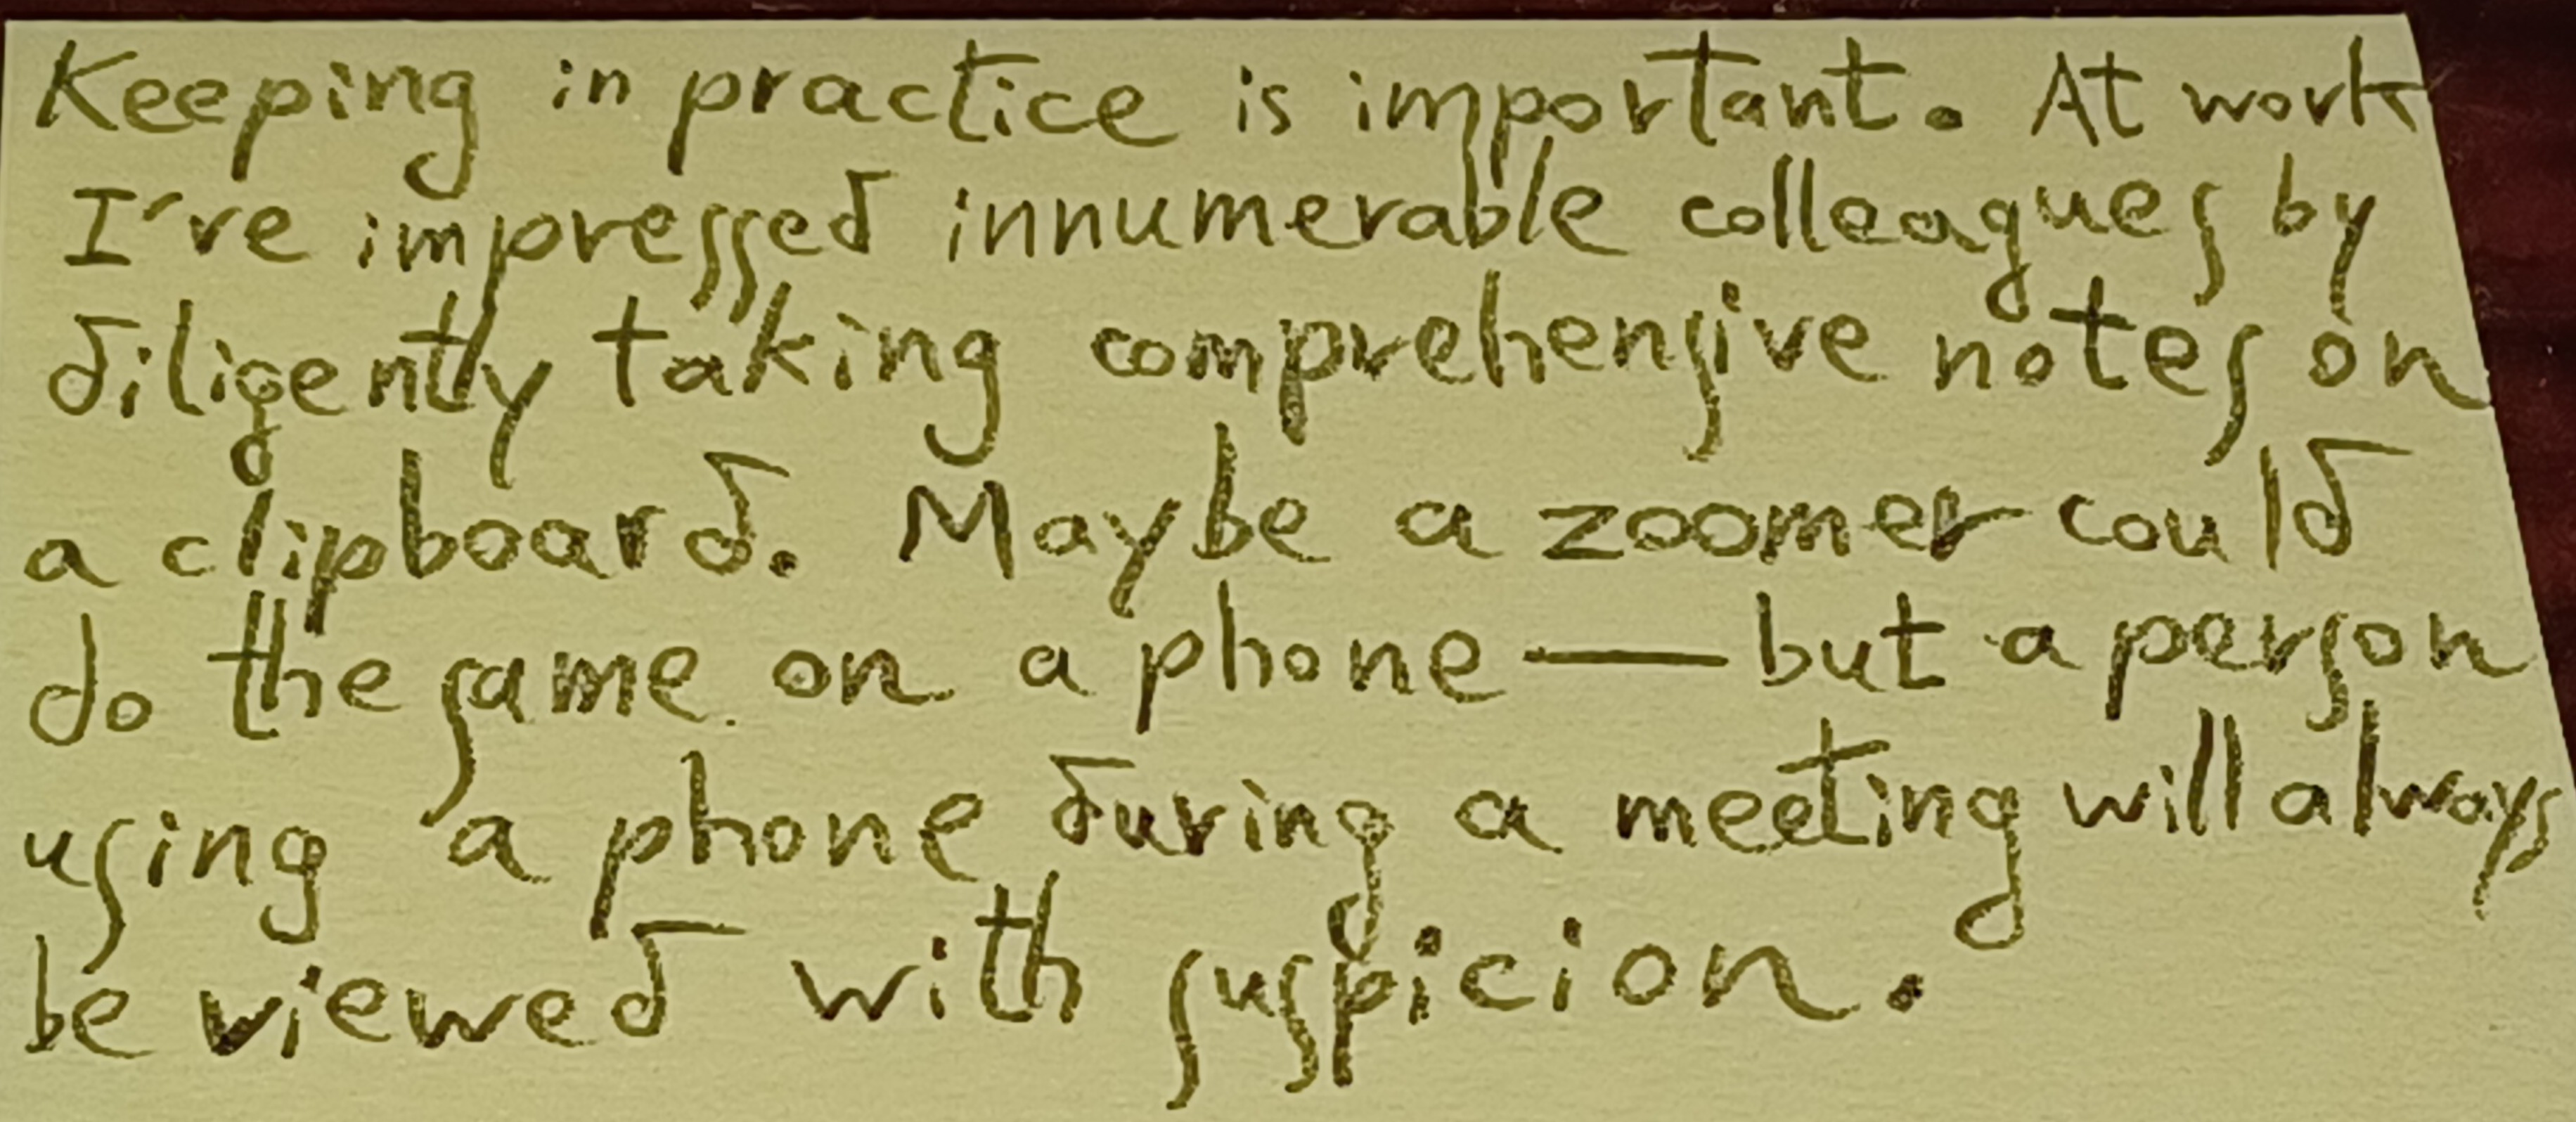 Keeping in practice is important. At work
I've impressed innumerable colleagues by
diligently taking comprehensive notes on
a clipboard. Maybe a zoomer could
do the same on a phone — but a person
using a phone during a meeting will always
be viewed with suspicion.